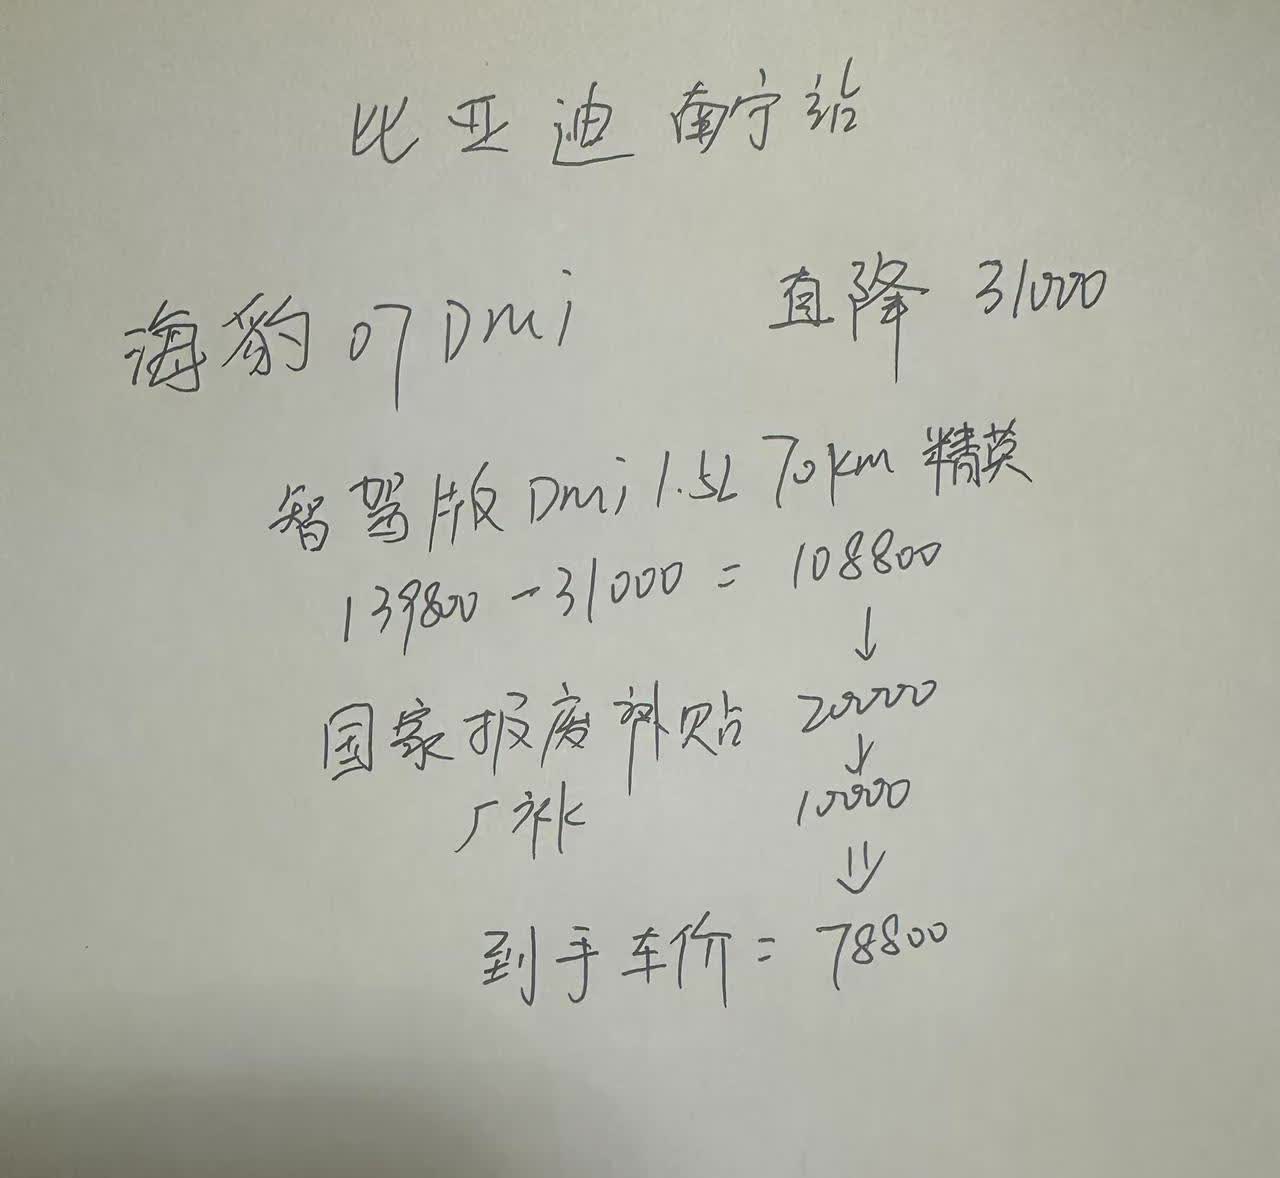 比亚迪 南宁站
海豹07Dmi 直降 31000
智驾版Dmi 1.5L 70km精英
139800-31000=108800
↓
国家报废补贴 20000
↓
厂补 10000
⇓
到手车价=78800